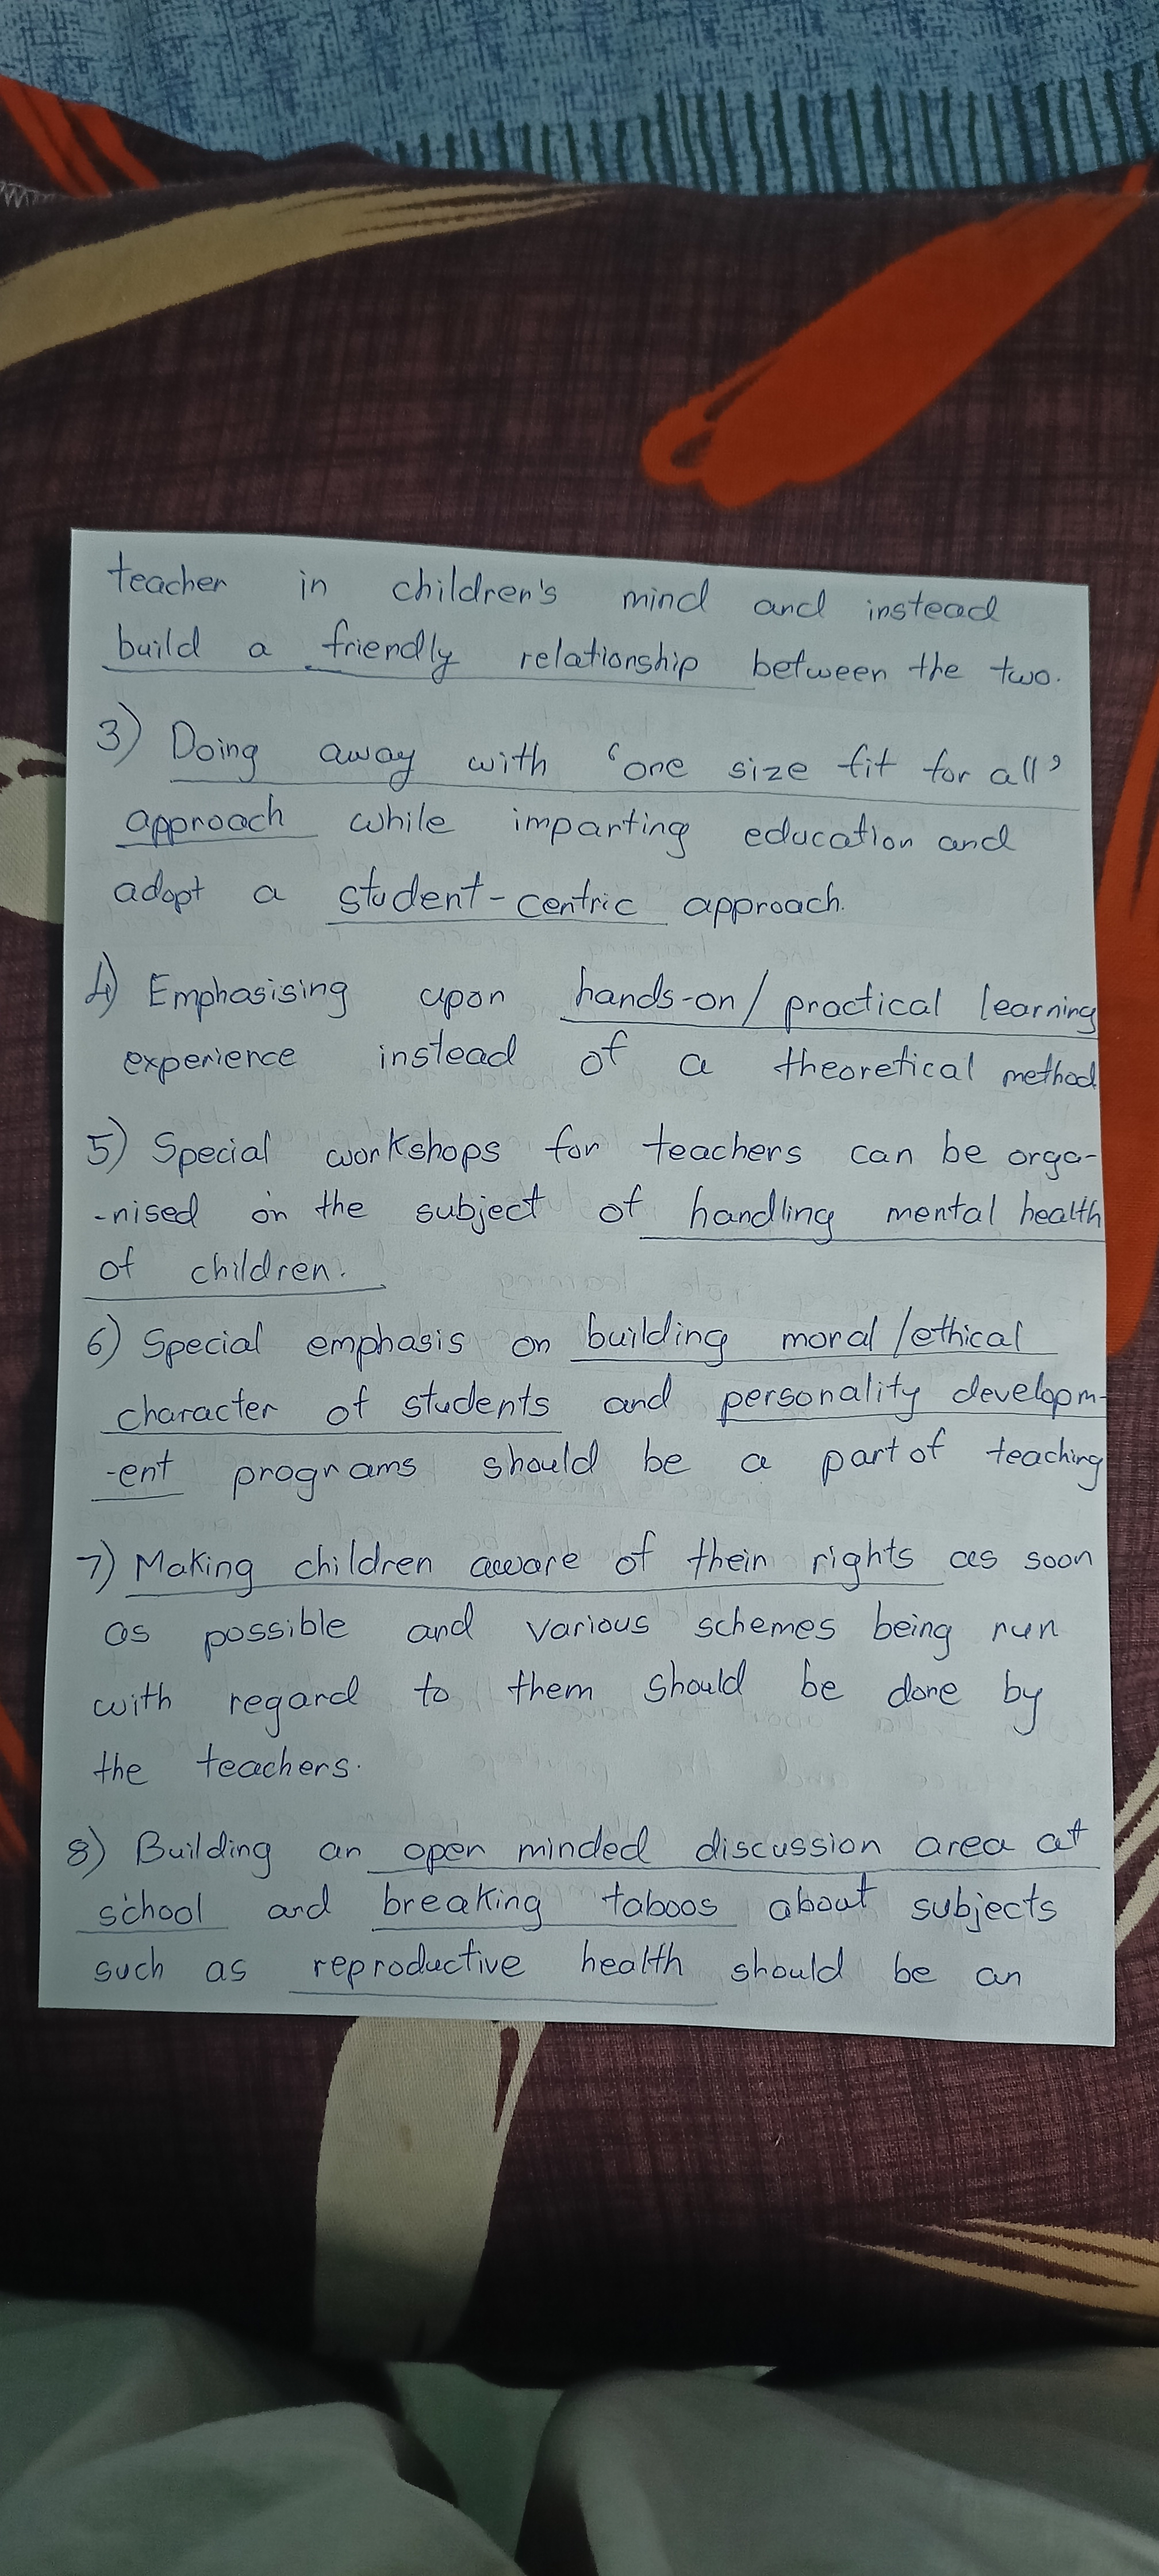 teacher in children's mind and instead
build a friendly relationship between the two.
3) Doing away with 'one size fit for all'
approach while imparting education and
adopt a student-centric approach.
4) Emphasising upon hands-on/ practical learning
experience instead of a theoretical method
5) Special workshops for teachers can be orga-
-nised on the subject of handling mental health
of children.
6) Special emphasis on building moral /ethical
character of students and personality developm-
-ent programs should be a part of teaching
7) Making children aware of their rights as soon
as possible and various schemes being run
with regard to them should be done by
the teachers.
8) Building an open minded discussion area at
school and breaking taboos about subjects
such as reproductive health should be an